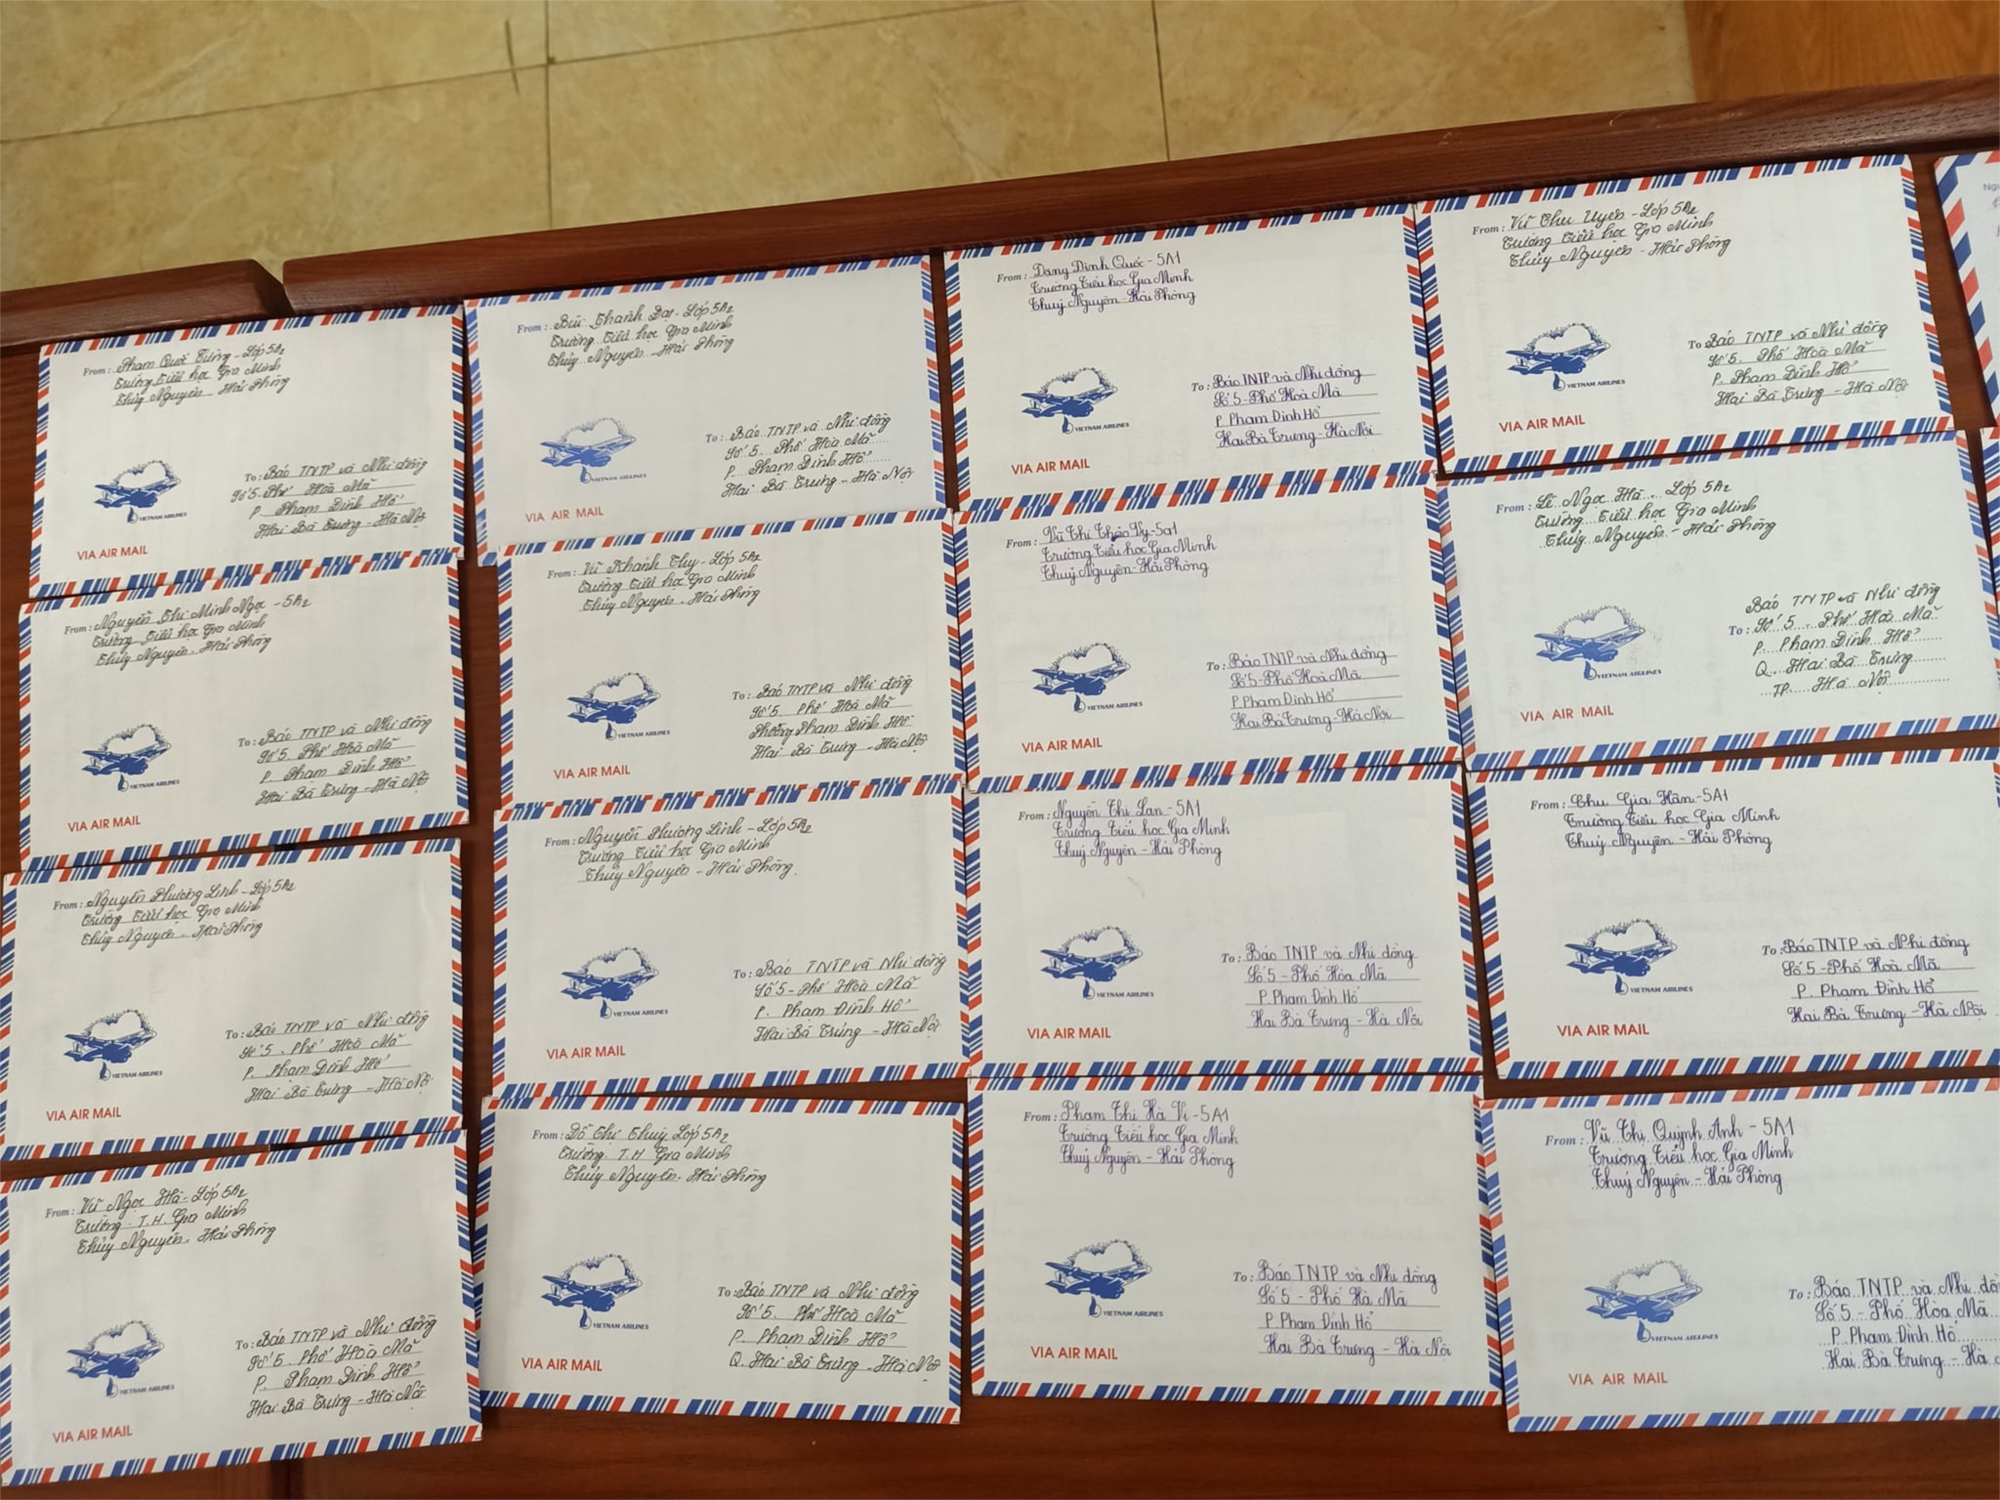 From: Phạm Quốc Cường - Lớp 5A2
Trường Tiểu học Gia Minh
Thủy Nguyên - Hải Phòng
To: Báo TNTP và Nhi đồng
Số 5 - Phố Hoà Mã
P. Phạm Đình Hổ
Hai Bà Trưng - Hà Nội
VIETNAM AIRLINES
VIA AIR MAIL
From: Nguyễn Thị Minh Ngọc - 5A2
Trường Tiểu học Gia Minh
Thủy Nguyên - Hải Phòng
To: Báo TNTP và Nhi đồng
Số 5 - Phố Hoà Mã
P. Phạm Đình Hổ
Hai Bà Trưng - Hà Nội
VIETNAM AIRLINES
VIA AIR MAIL
From: Nguyễn Phương Linh - Lớp 5A2
Trường Tiểu học Gia Minh
Thủy Nguyên - Hải Phòng
To: Báo TNTP và Nhi đồng
Số 5 - Phố Hoà Mã
P. Phạm Đình Hổ
Hai Bà Trưng - Hà Nội
VIETNAM AIRLINES
VIA AIR MAIL
From: Vũ Ngọc Hà - Lớp 5A2
Trường T.H Gia Minh
Thủy Nguyên - Hải Phòng
To: Báo TNTP và Nhi đồng
Số 5 - Phố Hoà Mã
P. Phạm Đình Hổ
Hai Bà Trưng - Hà Nội
VIETNAM AIRLINES
VIA AIR MAIL
From: Bùi Thành Đạt - Lớp 5A2
Trường Tiểu học Gia Minh
Thủy Nguyên - Hải Phòng
To: Báo TNTP và Nhi đồng
Số 5 - Phố Hoà Mã
P. Phạm Đình Hổ
Hai Bà Trưng - Hà Nội
VIETNAM AIRLINES
VIA AIR MAIL
From: Vũ Khánh Thy - Lớp 5A2
Trường Tiểu học Gia Minh
Thủy Nguyên - Hải Phòng
To: Báo TNTP và Nhi đồng
Số 5 Phố Hoà Mã
Phường Phạm Đình Hổ
Hai Bà Trưng - Hà Nội
VIETNAM AIRLINES
VIA AIR MAIL
From: Nguyễn Phương Linh - Lớp 5A2
Trường Tiểu học Gia Minh
Thủy Nguyên - Hải Phòng.
To: Báo TNTP và Nhi đồng
Số 5 - Phố Hoà Mã
P. Phạm Đình Hổ
Hai Bà Trưng - Hà Nội
VIETNAM AIRLINES
VIA AIR MAIL
From: Đỗ Thị Thuỳ Lớp 5A2
Trường T.H Gia Minh
Thủy Nguyên - Hải Phòng
To: Báo TNTP và Nhi đồng
Số 5 Phố Hoà Mã
P. Phạm Đình Hổ
Q. Hai Bà Trưng - Hà Nội
VIETNAM AIRLINES
VIA AIR MAIL
From: Đặng Đình Quốc - 5A1
Trường Tiểu học Gia Minh
Thuỷ Nguyên - Hải Phòng
To: Báo TNTP và Nhi đồng
Số 5 - Phố Hoà Mã
P. Phạm Đình Hổ
Hai Bà Trưng - Hà Nội
VIETNAM AIRLINES
VIA AIR MAIL
From: Vũ Thị Thảo Vy - 5a1
Trường Tiểu học Gia Minh
Thuỷ Nguyên - Hải Phòng
To: Báo TNTP và Nhi đồng
Số 5 - Phố Hoà Mã
P. Phạm Đình Hổ
Hai Bà Trưng - Hà Nội
VIETNAM AIRLINES
VIA AIR MAIL
From: Nguyễn Thị Lan - 5A1
Trường Tiểu học Gia Minh
Thuỷ Nguyên - Hải Phòng
To: Báo TNTP và Nhi đồng
Số 5 - Phố Hòa Mã
P. Phạm Đình Hổ
Hai Bà Trưng - Hà Nội
VIETNAM AIRLINES
VIA AIR MAIL
From: Phạm Thị Hà Vi - 5A1
Trường Tiểu học Gia Minh
Thuỷ Nguyên - Hải Phòng
To: Báo TNTP và Nhi đồng
Số 5 - Phố Hà Mã
P. Phạm Đình Hổ
Hai Bà Trưng - Hà Nội
VIETNAM AIRLINES
VIA AIR MAIL
From: Vũ Thu Uyên - Lớp 5A2
Trường Tiểu học Gia Minh
Thủy Nguyên - Hải Phòng
To Báo TNTP và Nhi đồng
Số 5. Phố Hoà Mã
P. Phạm Đình Hổ
Hai Bà Trưng - Hà Nội
VIETNAM AIRLINES
VIA AIR MAIL
From: Lê Ngọc Hà. Lớp 5A2
Trường Tiểu học Gia Minh
Thủy Nguyên - Hải Phòng
Báo TNTP và Nhi đồng
To: Số 5. Phố Hoà Mã
P. Phạm Đình Hổ
Q. Hai Bà Trưng
TP. Hà Nội
VIETNAM AIRLINES
VIA AIR MAIL
From: Chu Gia Hân - 5A1
Trường Tiểu học Gia Minh
Thuỷ Nguyên - Hải Phòng
To: Báo TNTP và Nhi đồng
Số 5 - Phố Hoà Mã
P. Phạm Đình Hổ
Hai Bà Trưng - Hà Nội
VIETNAM AIRLINES
VIA AIR MAIL
From: Vũ Thị Quỳnh Anh - 5A1
Trường Tiểu học Gia Minh
Thuỷ Nguyên - Hải Phòng
To: Báo TNTP và Nhi
Số 5 - Phố Hòa Mã
P. Phạm Đình Hổ
Hai Bà Trưng - Hà
VIETNAM AIRLINES
VIA AIR MAIL